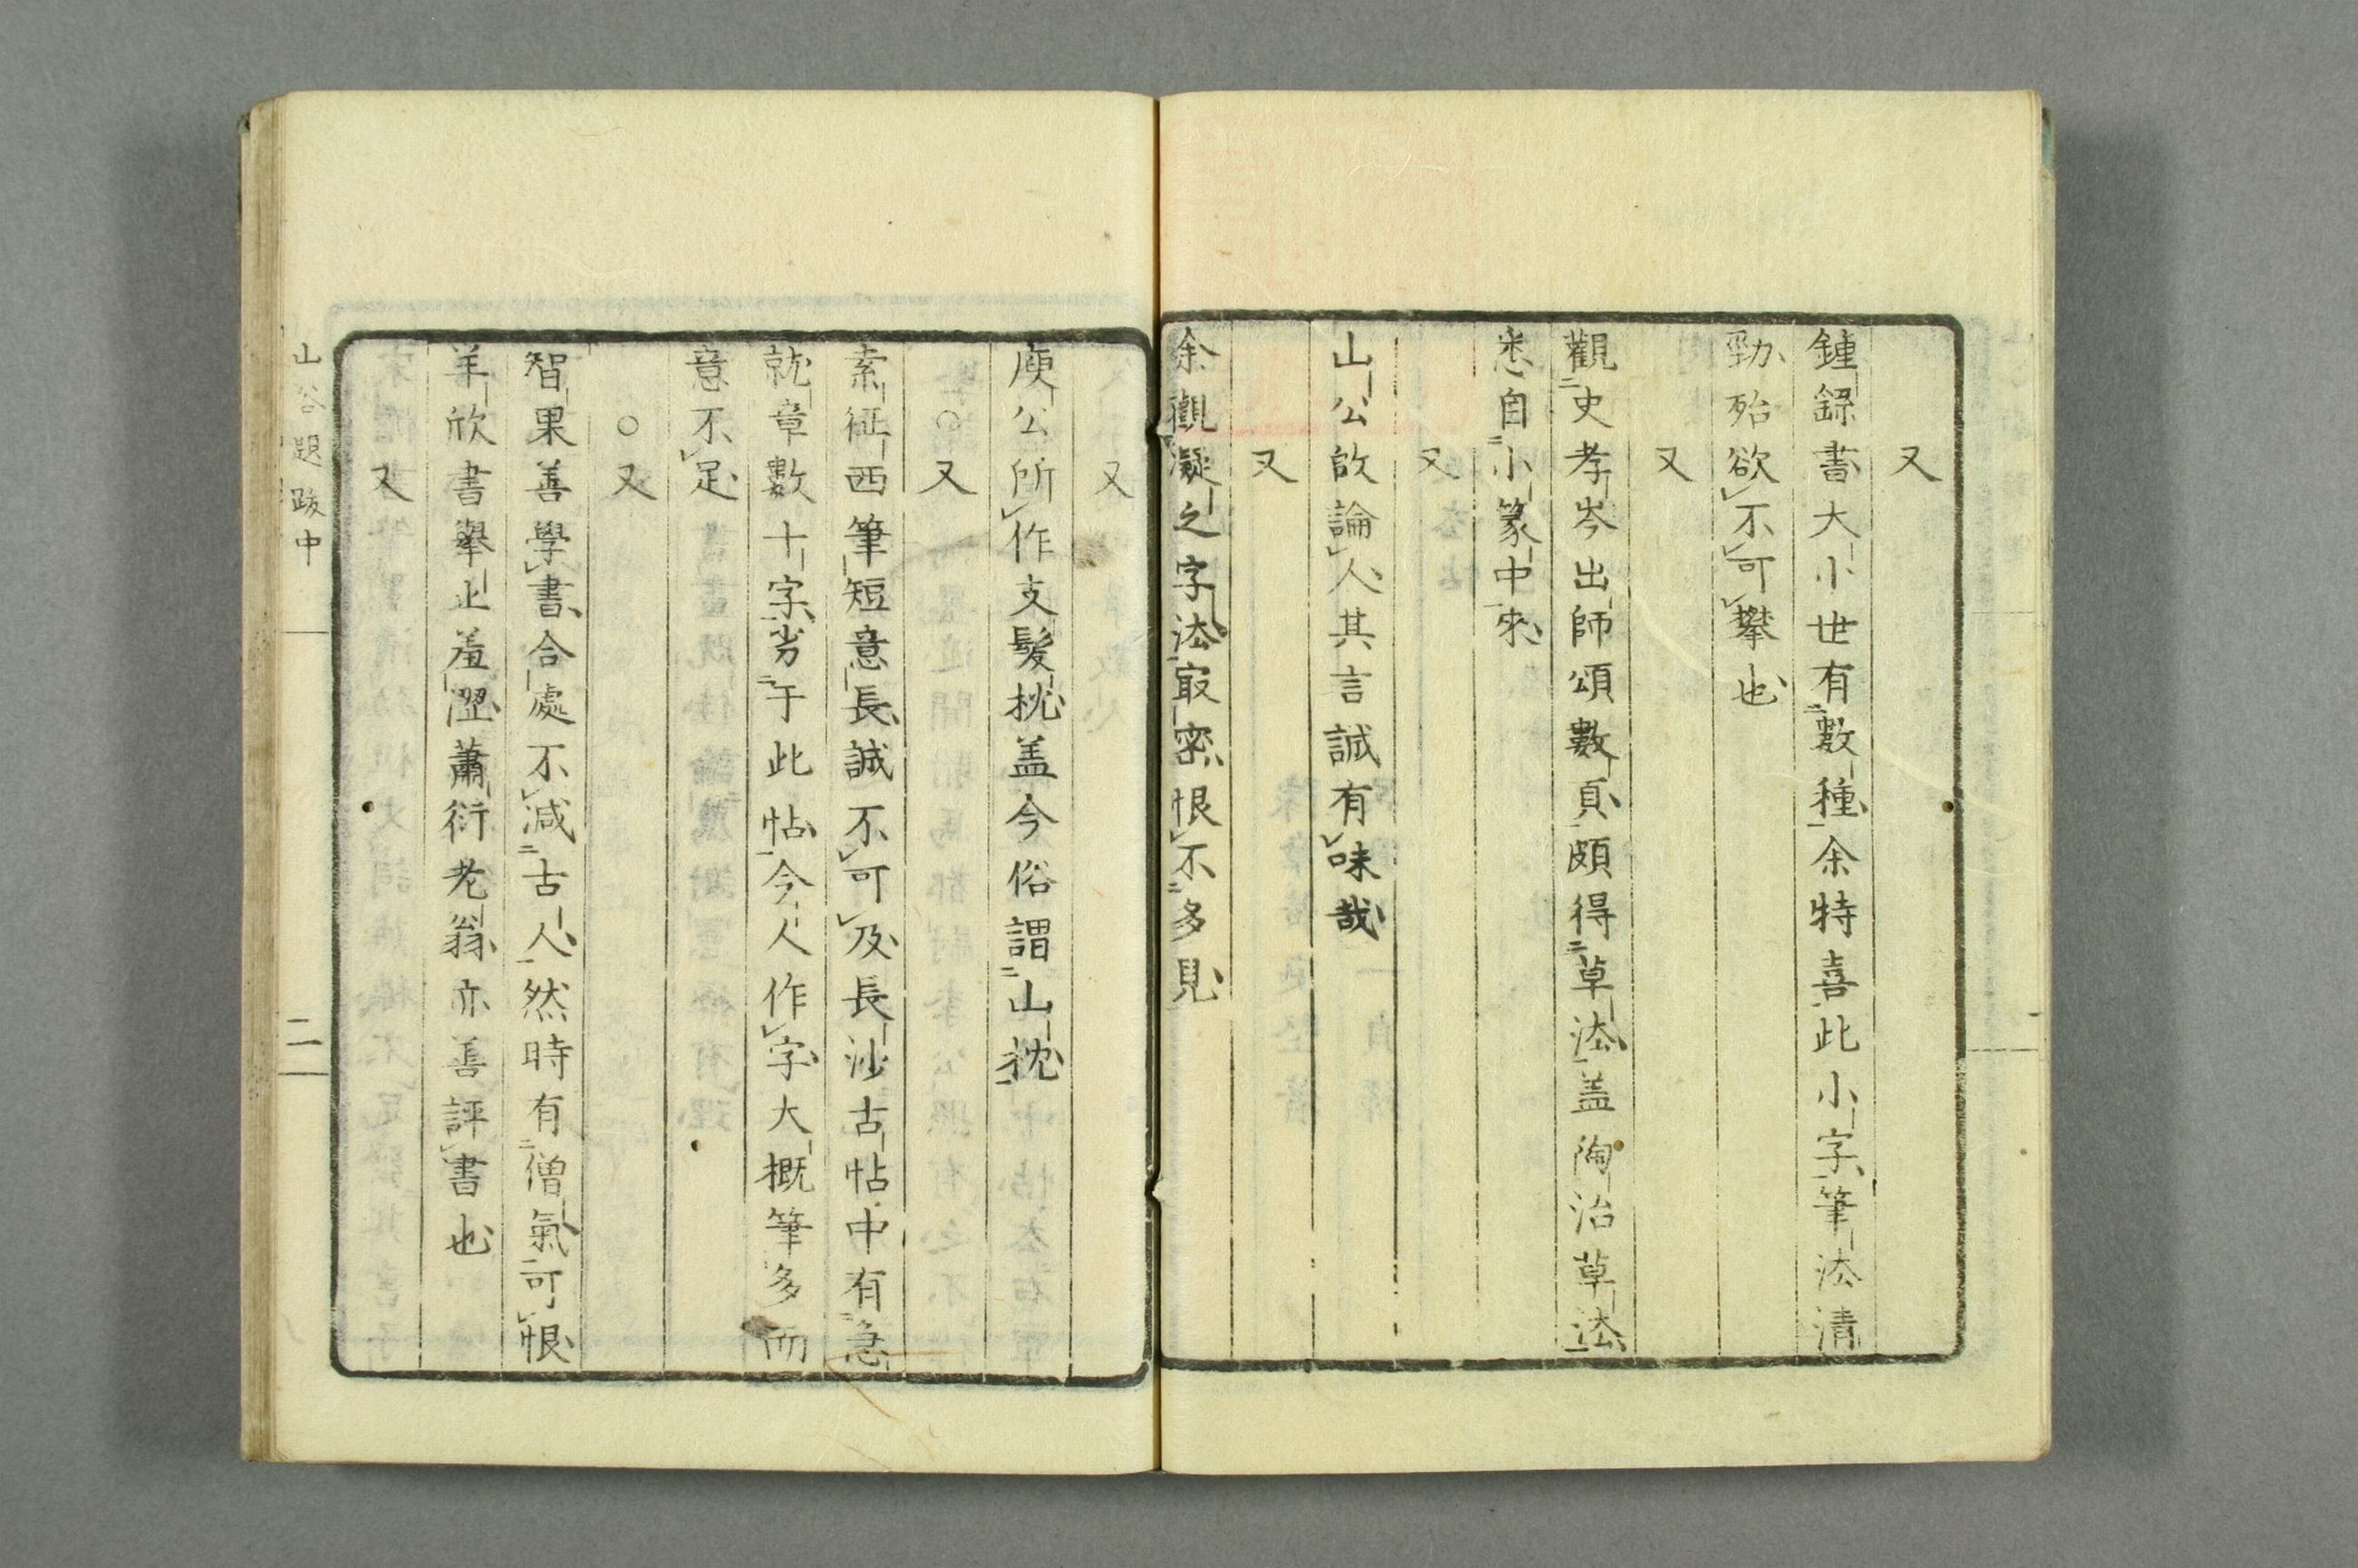 又
鍾繇書大小世有數種余特喜此小字筆法清
勁殆欲不可攀也
又
觀史孝岑出師頌數頁頗得草法盖陶治草法
悉自小篆中來
又
山公啟論人其言誠有味哉
又
余觀凝之字法㝡密恨不多見
又
庾公所作支髮枕盖今俗謂山枕
○又
索征西筆短意長誠不可及長沙古帖中有急
就章數十字劣于此帖今人作字大概筆多而
意不足
○又
智果善學書合處不減古人然時有僧氣可恨
羊欣書舉止羞澀蕭衍老翁亦善評書也
又
山谷題跋中
二